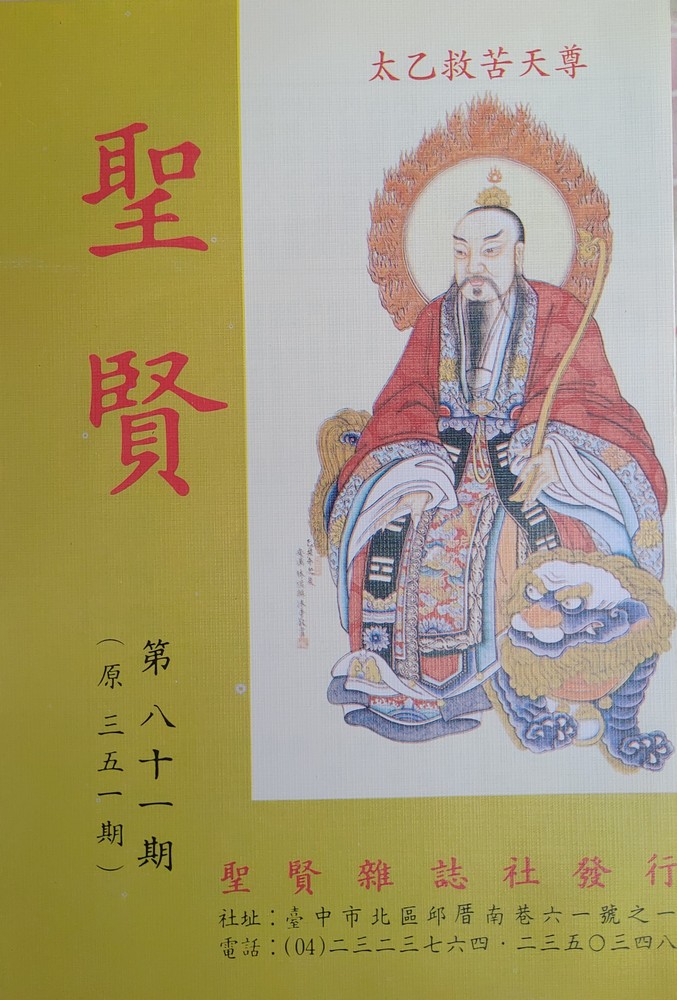 太乙救苦天尊
聖賢
第八十一期
(原三五一期)
聖賢雜誌社發行
社址：臺中市北區邱厝南巷六一號之一
電話：(04)二三二三七六四·二三五〇三四八